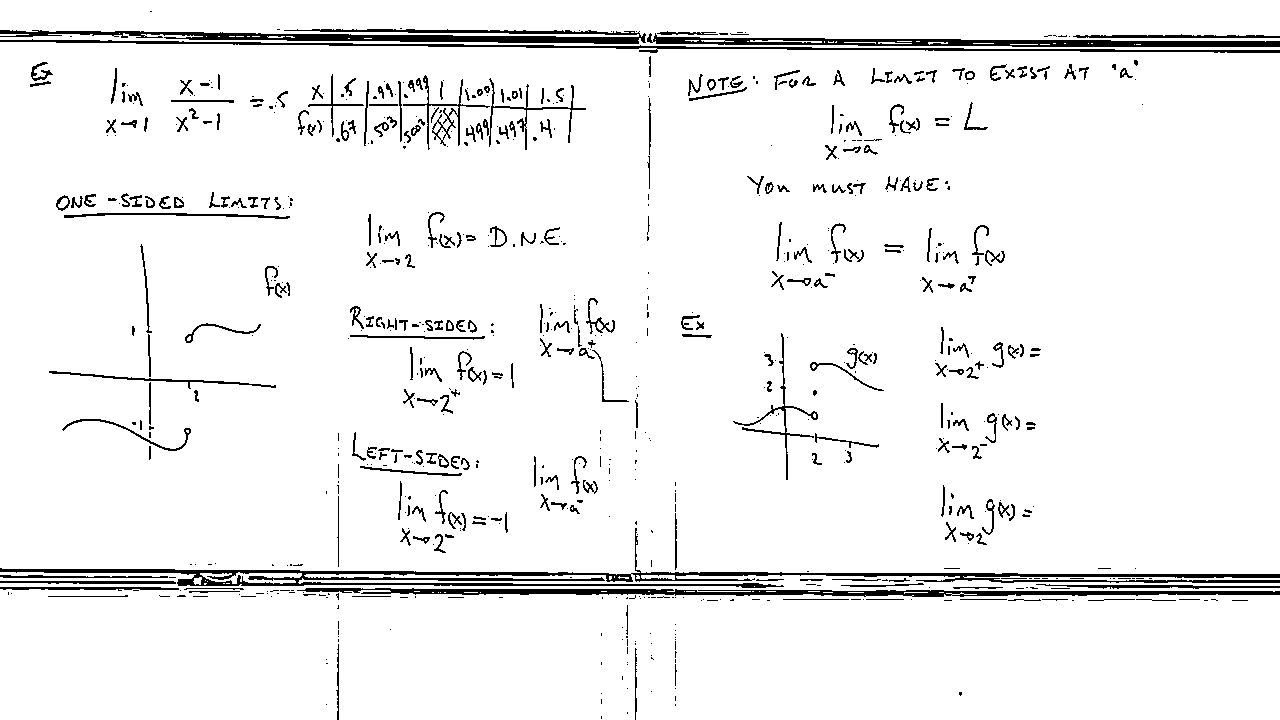 Ex
lim x→1 (x-1)/(x²-1) = .5
x | .5 | .99 | .999 | 1 | 1.001 | 1.01 | 1.5
f(x) | .67 | .503 | .5003 | | .499 | .497 | .4
ONE-SIDED LIMITS:
lim x→2 f(x) = D.N.E.
f(x)
1
2
-1
RIGHT-SIDED: lim x→a⁺ f(x)
lim x→2⁺ f(x) = 1
LEFT-SIDED: lim x→a⁻ f(x)
lim x→2⁻ f(x) = -1
NOTE: FOR A LIMIT TO EXIST AT "a"
lim x→a f(x) = L
YOU MUST HAVE:
lim x→a⁻ f(x) = lim x→a⁺ f(x)
Ex
g(x)
3
2
1
2 3
lim x→2⁺ g(x) =
lim x→2⁻ g(x) =
lim x→2 g(x) =